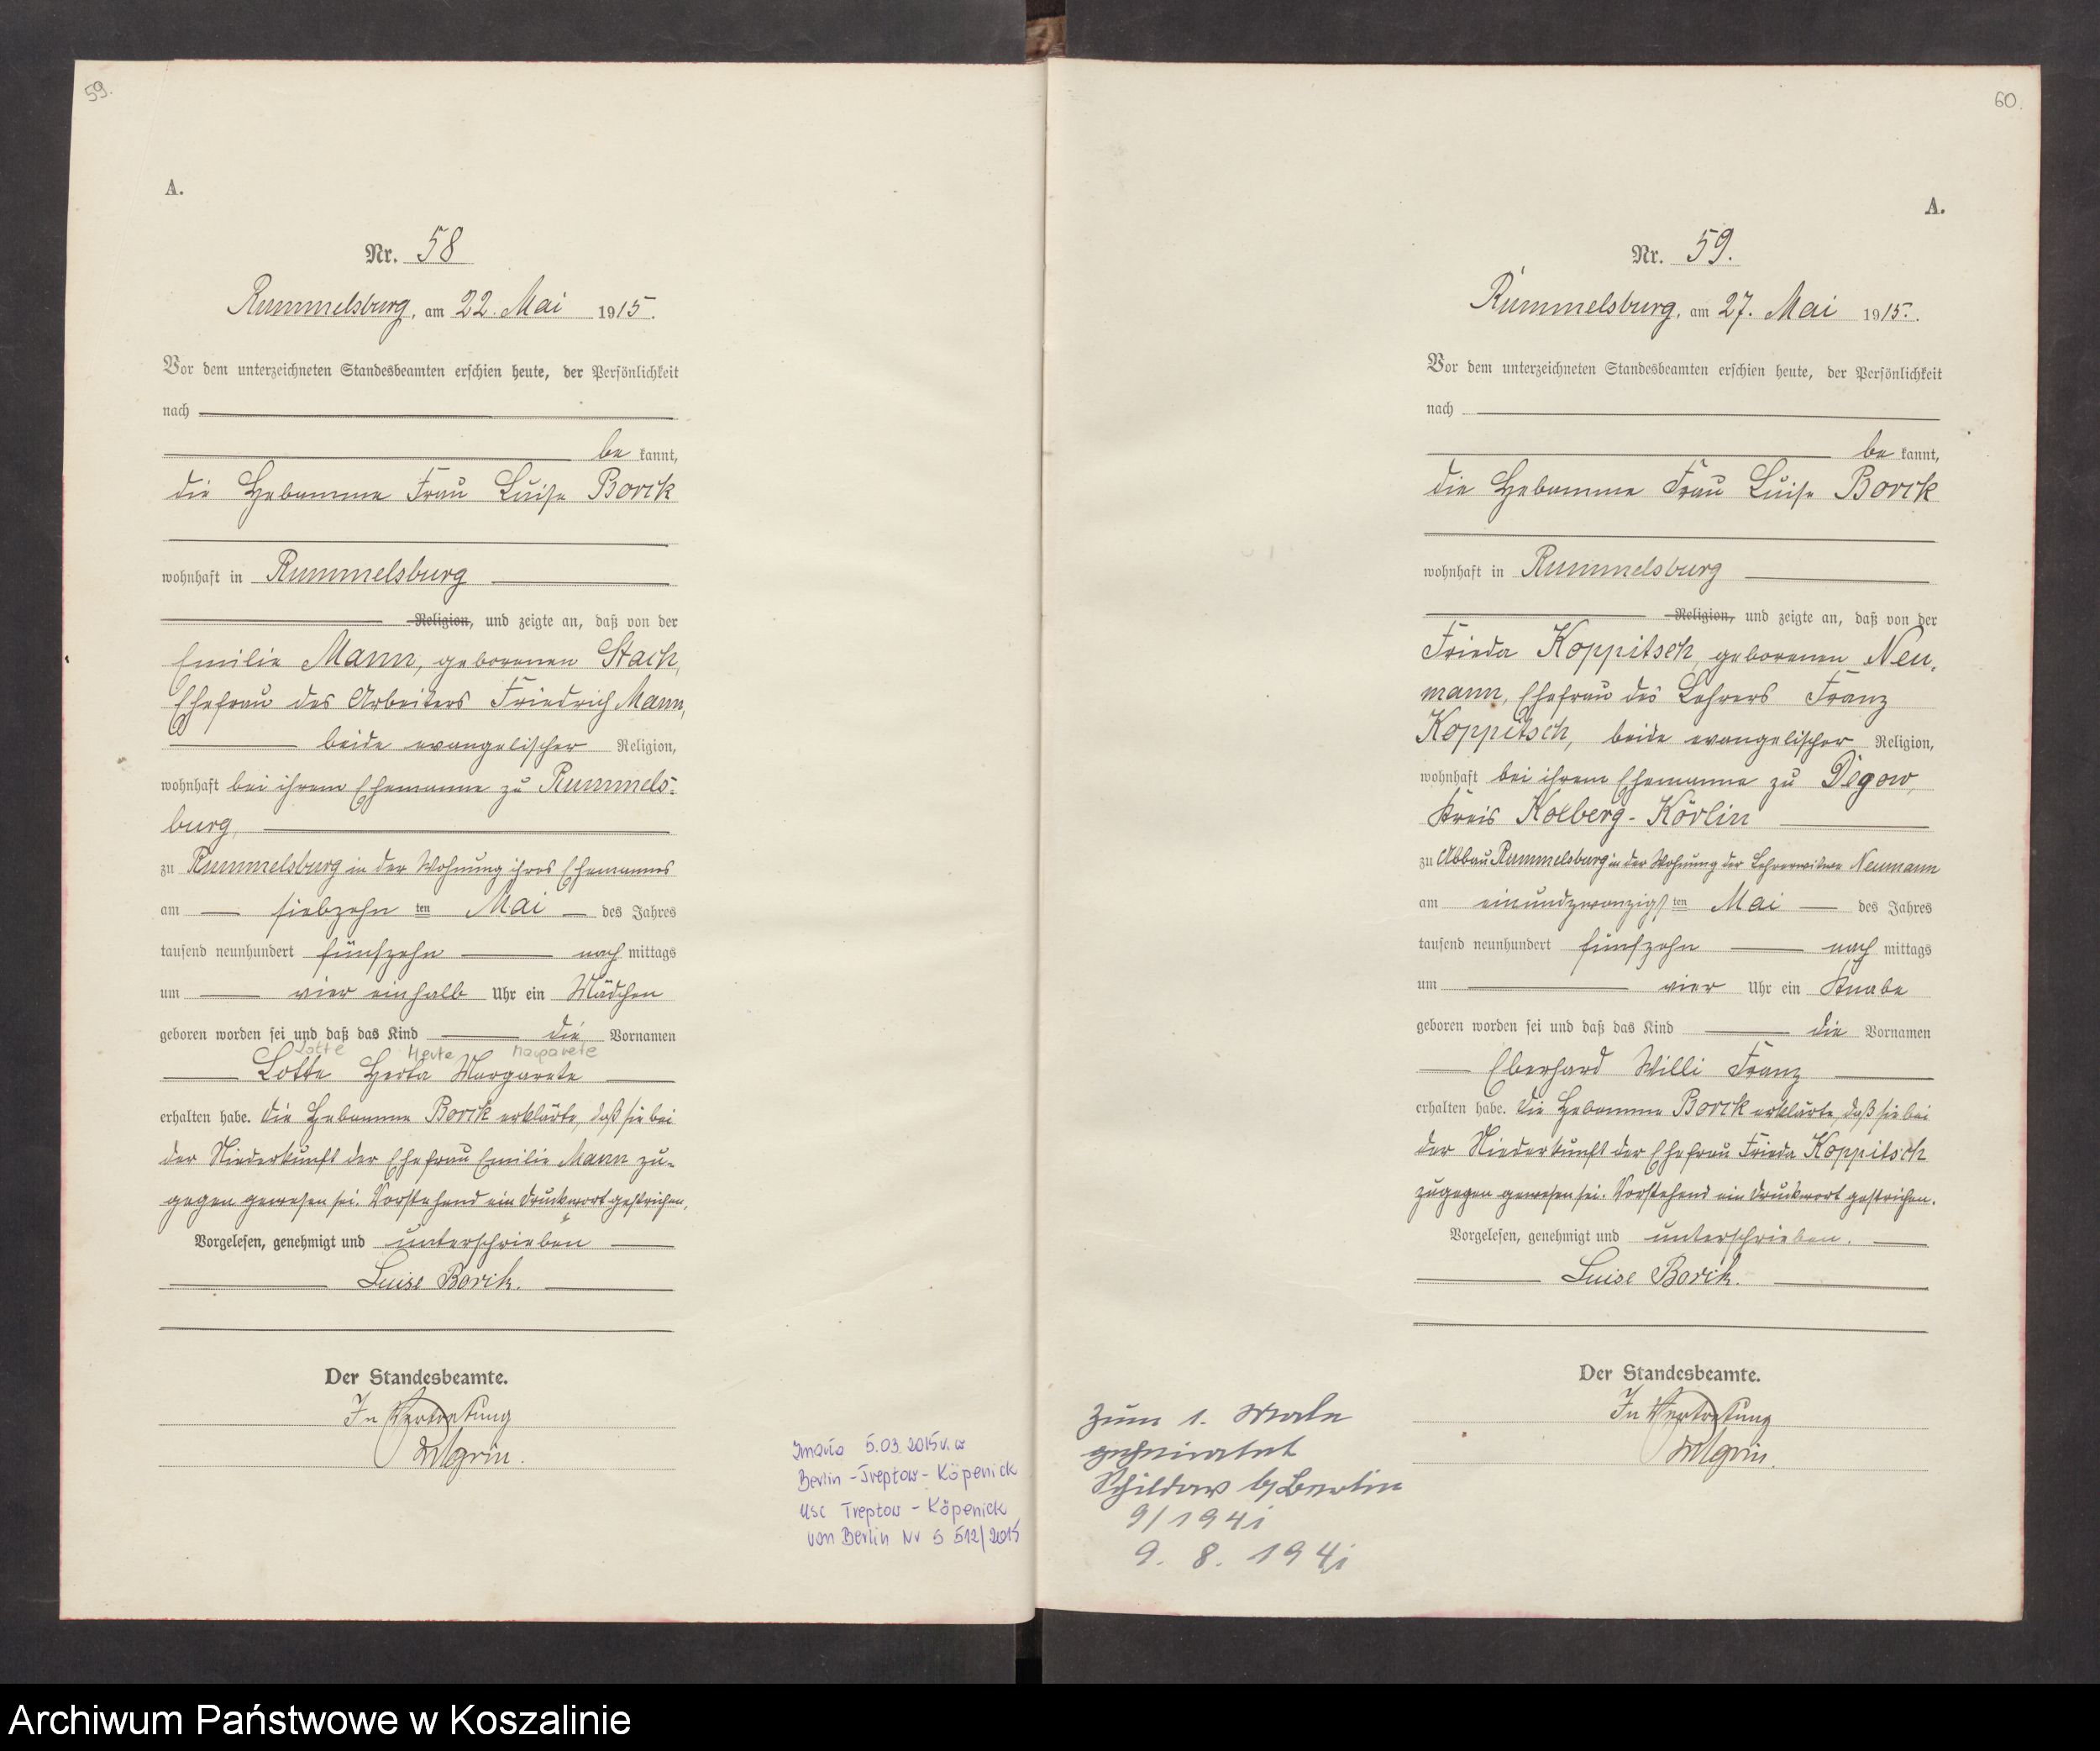 59.
A.
Nr. 58
Rummelsburg, am 22. Mai 1915.
Vor dem unterzeichneten Standesbeamten erschien heute, der Persönlichkeit
nach
be kannt,
die Hebamme Frau Luise Borck
wohnhaft in Rummelsburg
Religion, und zeigte an, daß von der
Emilie Mann, geborenen Stach,
Ehefrau des Arbeiters Friedrich Mann,
beide evangelischer Religion,
wohnhaft bei ihrem Ehemanne zu Rummels-
burg,
zu Rummelsburg in der Wohnung ihres Ehemannes
am siebzehn ten Mai des Jahres
tausend neunhundert fünfzehn nach mittags
um vier einhalb Uhr ein Mädchen
geboren worden sei und daß das Kind die Vornamen
Lotte Herta Margarete
Lotte Herta Margarete
erhalten habe. Die Hebamme Borck erklärte, daß sie bei
der Niederkunft der Ehefrau Emilie Mann zu-
gegen gewesen sei. Vorstehend ein Druckwort gestrichen.
Vorgelesen, genehmigt und unterschrieben
Luise Borck.
Der Standesbeamte.
In Vertretung
5.03.2015
Berlin - Treptow - Köpenick
USC Treptow - Köpenick
von Berlin Nr S 512/2015
60.
A.
Nr. 59.
Rummelsburg, am 27. Mai 1915.
Vor dem unterzeichneten Standesbeamten erschien heute, der Persönlichkeit
nach
be kannt,
die Hebamme Frau Luise Borck
wohnhaft in Rummelsburg
Religion, und zeigte an, daß von der
Frieda Koppitsch, geborenen Neu-
mann, Ehefrau des Lehrers Franz
Koppitsch, beide evangelischer Religion,
wohnhaft bei ihrem Ehemanne zu Degow,
Kreis Kolberg-Körlin
zu Abbau Rummelsburg in der Wohnung der Lehrerwitwe Neumann
am einundzwanzigs ten Mai des Jahres
tausend neunhundert fünfzehn nach mittags
um vier Uhr ein Knabe
geboren worden sei und daß das Kind die Vornamen
Eberhard Willi Franz
erhalten habe. Die Hebamme Borck erklärte, daß sie bei
der Niederkunft der Ehefrau Frieda Koppitsch
zugegen gewesen sei. Vorstehend ein Druckwort gestrichen.
Vorgelesen, genehmigt und unterschrieben.
Luise Borck.
Der Standesbeamte.
In Vertretung
Zum 1. Male
geheiratet
Schildow b/Berlin
9/1941
9. 8. 1941
Archiwum Państwowe w Koszalinie